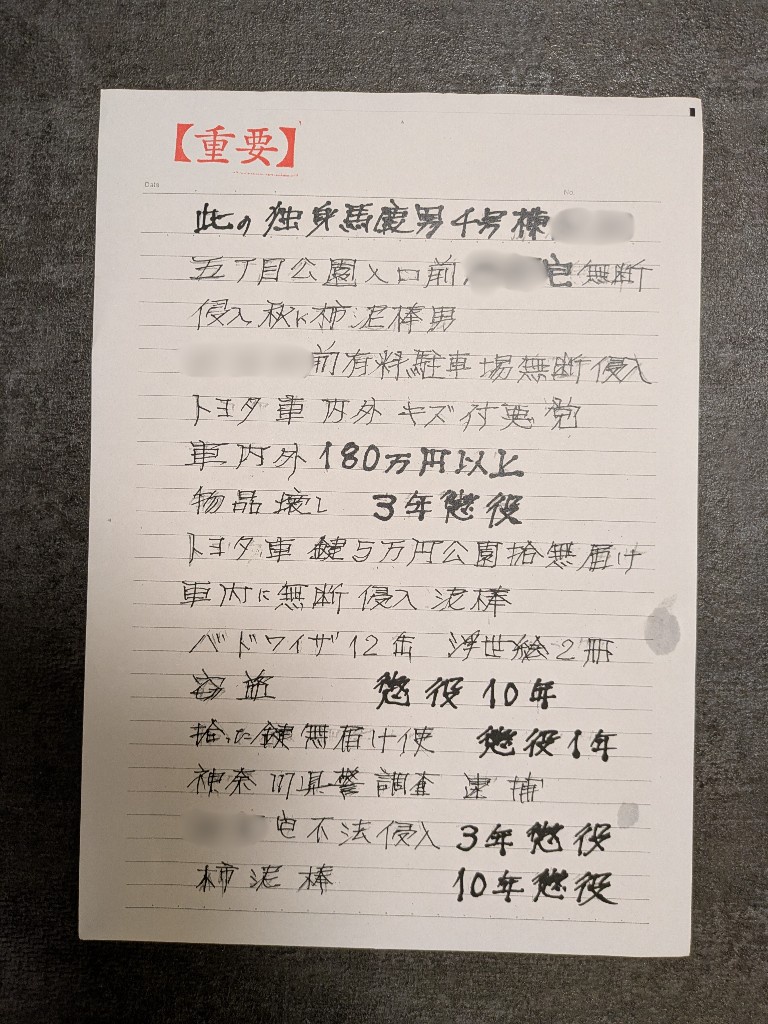 【重要】
Date No.
此の独身馬鹿男千号棟
五丁目公園入口前 宅無断
侵入 秋に柿泥棒男
前有料駐車場無断侵入
トヨタ車 内外 キズ付悪党
車内外 180万円以上
物品壊し 3年懲役
トヨタ車 鍵5万円公園拾無届け
車内に無断侵入 泥棒
バドワイザ12缶 浮世絵2冊
懲役10年
拾った鍵無届け使 懲役1年
神奈川県警調査 逮捕
宅不法侵入 3年懲役
柿泥棒 10年懲役